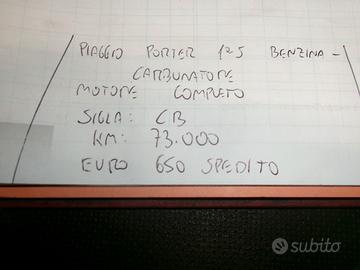 PIAGGIO PORTER 125 BENZINA -
CARBURATORE
MOTORE COMPLETO
SIGLA: CB
KM: 73.000
EURO 650 SPEDITO
subito